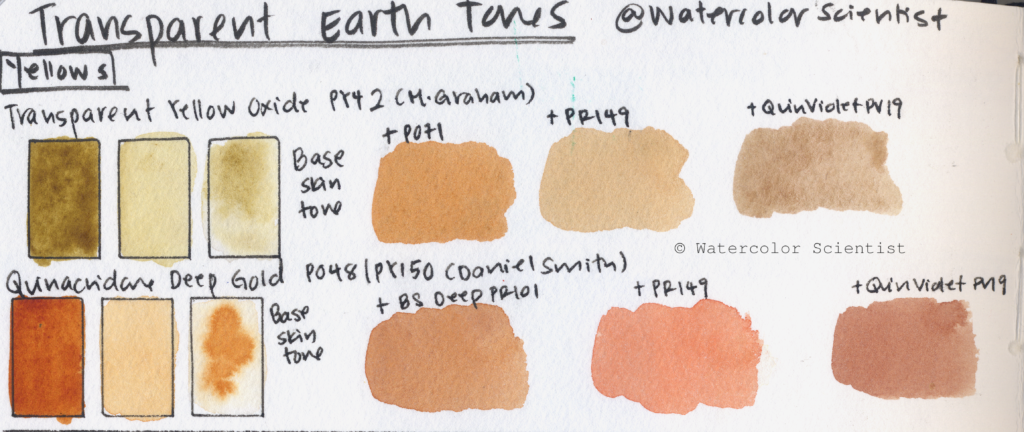 Transparent Earth Tones @WatercolorScientist
Yellows
Transparent Yellow Oxide PY42 (M.Graham)
+ PO71
+ PR149
+ QuinViolet PV19
Base
skin
tone
© Watercolor Scientist
Quinacridone Deep Gold PO48/PY150 (Daniel Smith)
+ BS Deep PR101
+ PR149
+ QuinViolet PV19
Base
skin
tone